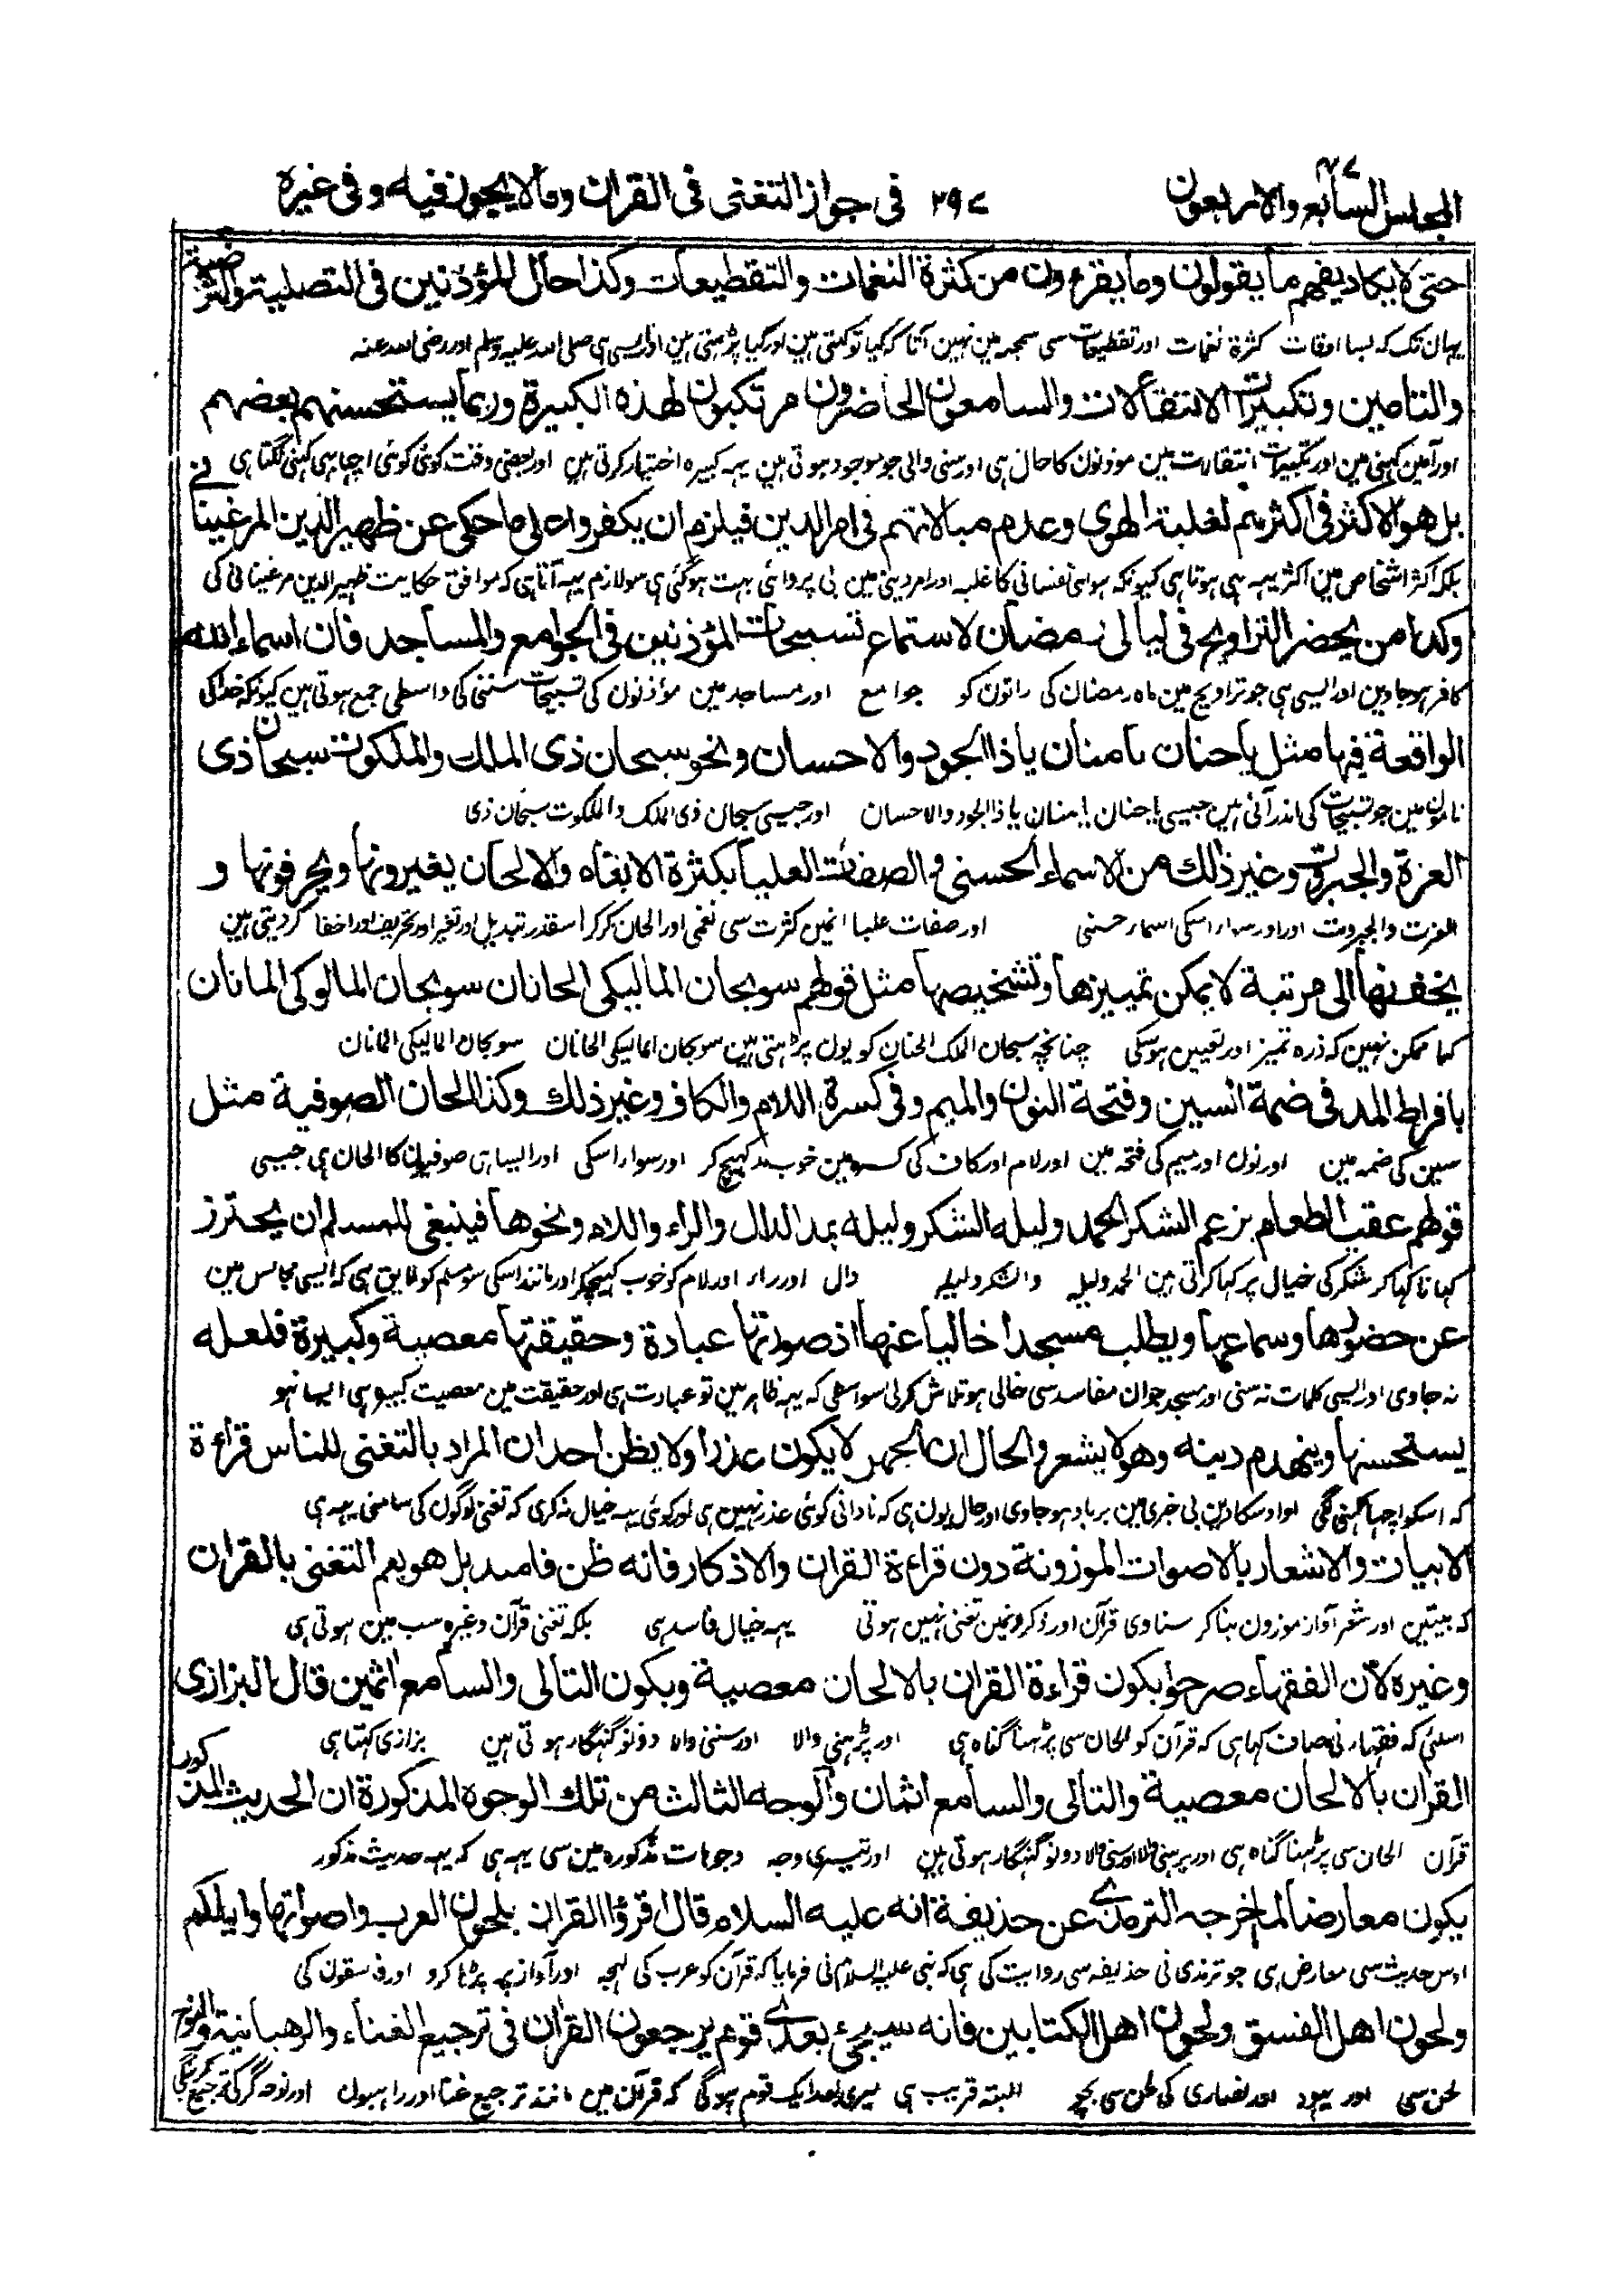 المجلس السابع والاربعون ٤٧ ٣٩٧ فى جواز التغنى فى القران وما لا يجوز فيه و فى غيره
حتى لا يكاد يفهم ما يقولون وما يقرءون من كثرة النغمات والتقطيعات وكذا حال المؤذنين فى التصلية والترضية
یہان تک کہ بسا اوقات کثرة نغمات اور تقطیعات سی سمجہ مین نہین آتا کہ کیا تو کہتی ہین اور کیا پڑہتی ہین اور ایسی ہی صلی اللہ علیہ وسلم اور رضی اللہ عنہ
والتامين وتكبيرات الانتقالات والسامعون الحاضرون مرتكبون لهذه الكبيرة وربما يستحسنهم بعضهم
اور آمین کہنی مین اور تکبیرات انتقالات مین موذنون کا حال ہی اور سنی والی جو موجود ہوتی ہین یہہ کبیرہ اختیار کرتی ہین اور بعضی وقت کوئی کوئی اچہا ہی کہنی لگتا ہی
بل هو الاكثر فى اكثرهم لغلبة الهوى وعدم مبالاتهم فى امر الدين فيلزم ان يكفروا على ما حكى عن ظهير الدين المرغينانى
بلکہ اکثر اشخاص مین اکثر یہہ ہی ہوتا ہی کیونکہ ہوای نفسانی کا غلبہ اور امر دین مین بی پروائی بہت ہوگئی ہی سو لازم یہہ آتا ہی کہ موافق حکایت ظہیر الدین مرغینانی کی
وكذا من يحضر التراويح فى ليالى رمضان لاستماع تسبيحات المؤذنين فى الجوامع والمساجد فان اسماء الله
کافر ہو جاوین اور ایسی ہی جو تراویح مین ماہ رمضان کی راتون کو جوامع اور مساجد مین مؤذنون کی تسبیحات سننی کی واسطی جمع ہوتی ہین کیونکہ خدا کی
الواقعة فيها مثل يا حنان يا منان يا ذا الجود والاحسان ونحو سبحان ذى الملك والملكوت سبحان ذى
نامون مین جو تسبیحات کی اندر آئی ہین جیسی یا حنان یا منان یا ذا الجود والاحسان اور جیسی سبحان ذی الملک والملکوت سبحان ذی
العزة والجبروت وغير ذلك من الاسماء الحسنى والصفات العليا بكثرة الانغام والالحان يغيرونها ويحرفونها و
العزت والجبروت اور اور سوا اسکی اسمار حسنی اور صفات علیا انمین کثرت سی نغمی اور الحان کر کر اسقدر تبدیل اور تغیر اور تحریف اور اخفا کر دیتی ہین
يخفونها الى مرتبة لا يمكن تمييزها وتشخيصها مثل قولهم سوبحان الماليكى الحانان سوبحان المالوكى المانان
کہ ممکن نہین کہ ذرہ تمیز اور تعیین ہوسکی چنانچہ سبحان الملک الحنان کو یون پڑہتی ہین سوبحان المالیکی الحانان سوبحان المالیکی المانان
بافراط المد فى ضمة السين وفتحة النون والميم وفى كسرة اللام والكاف وغير ذلك وكذا الحان الصوفية مثل
سین کی ضمہ مین اور نون اور میم کی فتحہ مین اور لام اور کاف کی کسرہ مین خوب مد کہینچ کر اور سوا اسکی اور ایسا ہی صوفیون کا الحان ہی جیسی
قولهم عقيب الطعام بزعم الشكر الحمد وليله الشكر وليله بمد الدال والراء واللام ونحوها فينبغى للمسلم ان يحترز
کہانا کہا کر شکر کی خیال پر کہا کرتی ہین الحمد ولیلہ والشکر ولیلہ دال اور راء اور لام کو خوب کہینچکر اور مانند اسکی سو مسلم کو لایق ہی کہ ایسی مجالس مین
عن حضورها وسماعها ويطلب مسجدا خاليا عنها اذ صورتها عبادة وحقيقتها معصية وكبيرة فلعله
نہ جاوی اور ایسی کلمات نہ سنی اور مسجد جو ان مفاسد سی خالی ہو تلاش کرلی اسواسطی کہ یہہ ظاہر مین تو عبادت ہی اور حقیقت مین معصیت کبیرہ ہی ایسا نہو
يستحسنها وينهدم دينه وهو لا يشعر والحال ان الجهل لا يكون عذرا ولا يظن احد ان المراد بالتغنى للناس قراءة
کہ اسکو اچہا کہنی لگی اور اوسکا دین بی خبری مین برباد ہو جاوی اور حال یون ہی کہ نادانی کوئی عذر نہین ہی اور کوئی یہہ خیال نہ کری کہ تغنی لوگون کی سامنی یہہ ہی
الابيات والاشعار بالاصوات الموزونة دون قراءة القران والاذكار فانه ظن فاسد بل هو يعم التغنى بالقران
کہ بیتین اور شعر آواز موزون بنا کر سناوی قرآن اور ذکرونمین تغنی نہین ہوتی یہہ خیال فاسد ہی بلکہ تغنی قرآن وغیرہ سب مین ہوتی ہی
وغيره لان الفقهاء صرحوا بكون قراءة القران بالالحان معصية وبكون التالى والسامع اثمين قال البزازى
اسلئی کہ فقہار نی صاف کہا ہی کہ قرآن کو الحان سی پڑہنا گناہ ہی اور پڑہنی والا اور سننی والا دونو گنہگار ہوتی ہین بزازی کہتا ہی
القران بالالحان معصية والتالى والسامع اثمان والوجه الثالث من تلك الوجوه المذكورة ان الحديث المذكور
قرآن الحان سی پڑہنا گناہ ہی اور پڑہنی والا اور سنی والا دونو گنہگار ہوتی ہین اور تیسری وجہ وجوہات مذکورہ مین سی یہہ ہی کہ یہہ حدیث مذکور
يكون معارضا لما اخرجه الترمذى عن حذيفة انه عليه السلام قال اقرؤا القران بلحون العرب واصواتها واياكم
اوس حدیث سی معارض ہی جو ترمذی نی حذیفہ سی روایت کی ہی کہ نبی علیہ السلام نی فرمایا کہ قرآن کو عرب کی لہجہ اور آواز پر پڑہا کرو اور فاسقون کی
ولحون اهل الفسق ولحون اهل الكتابين فانه سيجىء بعدى قوم يرجعون القران فى ترجيع الغناء والرهبانية والنوح
لحن سی اور یہود اور نصاری کی لحن سی بچو البتہ قریب ہی میری بعد ایک قوم ہوگی کہ قرآن مین مانند ترجیع غنا اور راہبون اور نوحہ گر کی ترجیع کرینگی